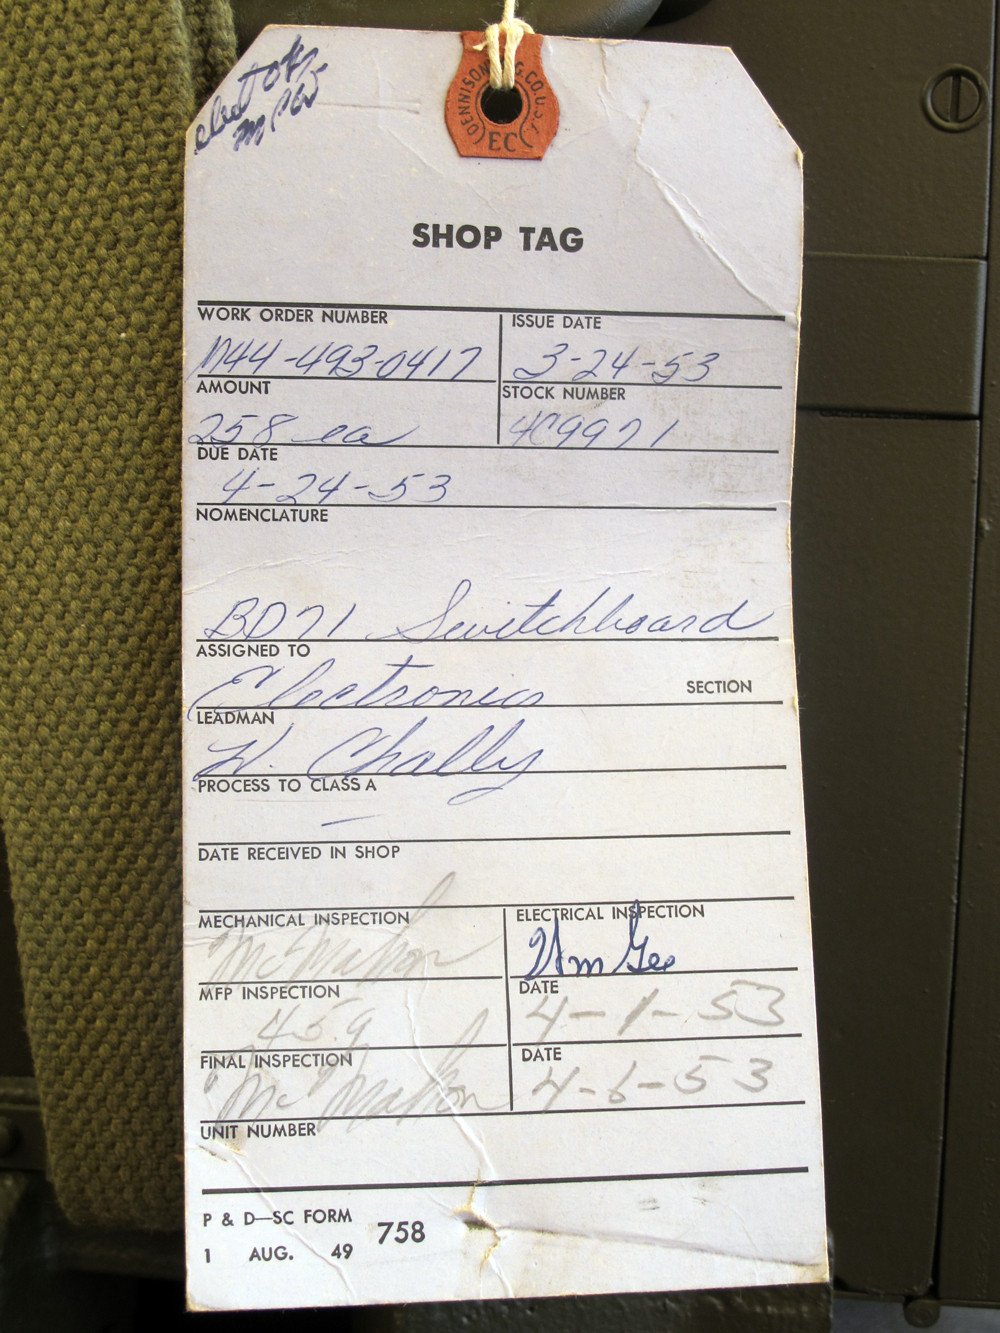 elect ok
DENNISON MFG. CO. U.S.A.
EC
SHOP TAG
WORK ORDER NUMBER ISSUE DATE
M44-493-0417 3-24-53
AMOUNT STOCK NUMBER
258 ea 4C9971
DUE DATE
4-24-53
NOMENCLATURE
BD71 Switchboard
ASSIGNED TO
Electronics SECTION
LEADMAN
W. Chally
PROCESS TO CLASS A
–
DATE RECEIVED IN SHOP
MECHANICAL INSPECTION ELECTRICAL INSPECTION
McMahon Wm Gee
MFP INSPECTION DATE
459 4-1-53
FINAL INSPECTION DATE
McMahon 4-6-53
UNIT NUMBER
P & D—SC FORM 758
1 AUG. 49